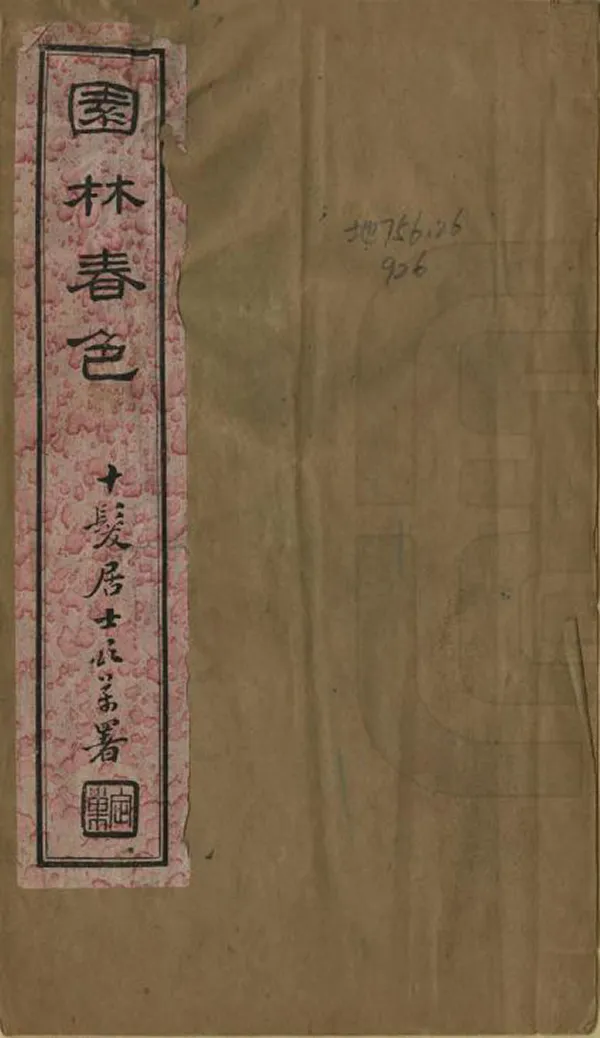 園林春色
十髮居士頌萬署
定萬
地756.26
926